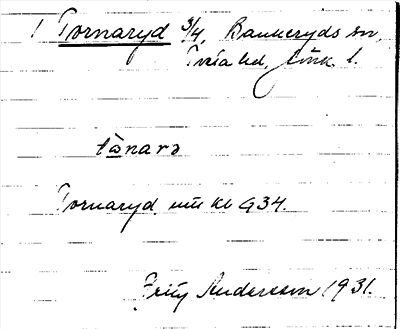 1 Tornaryd 3/4, Bankeryds sn,
Tveta hd, Jönk. l.
tὰnarə
Tornaryd mtl kb G34.
Fritz Andersson 1931.